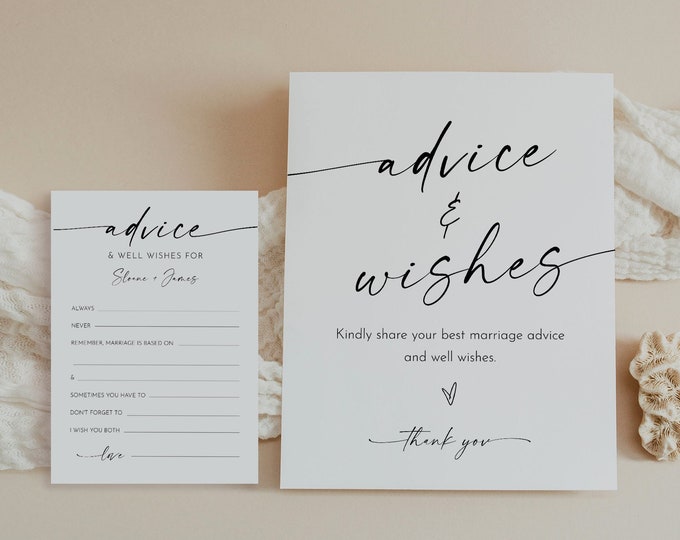 advice
& WELL WISHES FOR
Sloane + James
ALWAYS
NEVER
REMEMBER, MARRIAGE IS BASED ON
&
SOMETIMES YOU HAVE TO
DON'T FORGET TO
I WISH YOU BOTH
love
advice
&
wishes
Kindly share your best marriage advice
and well wishes.
thank you